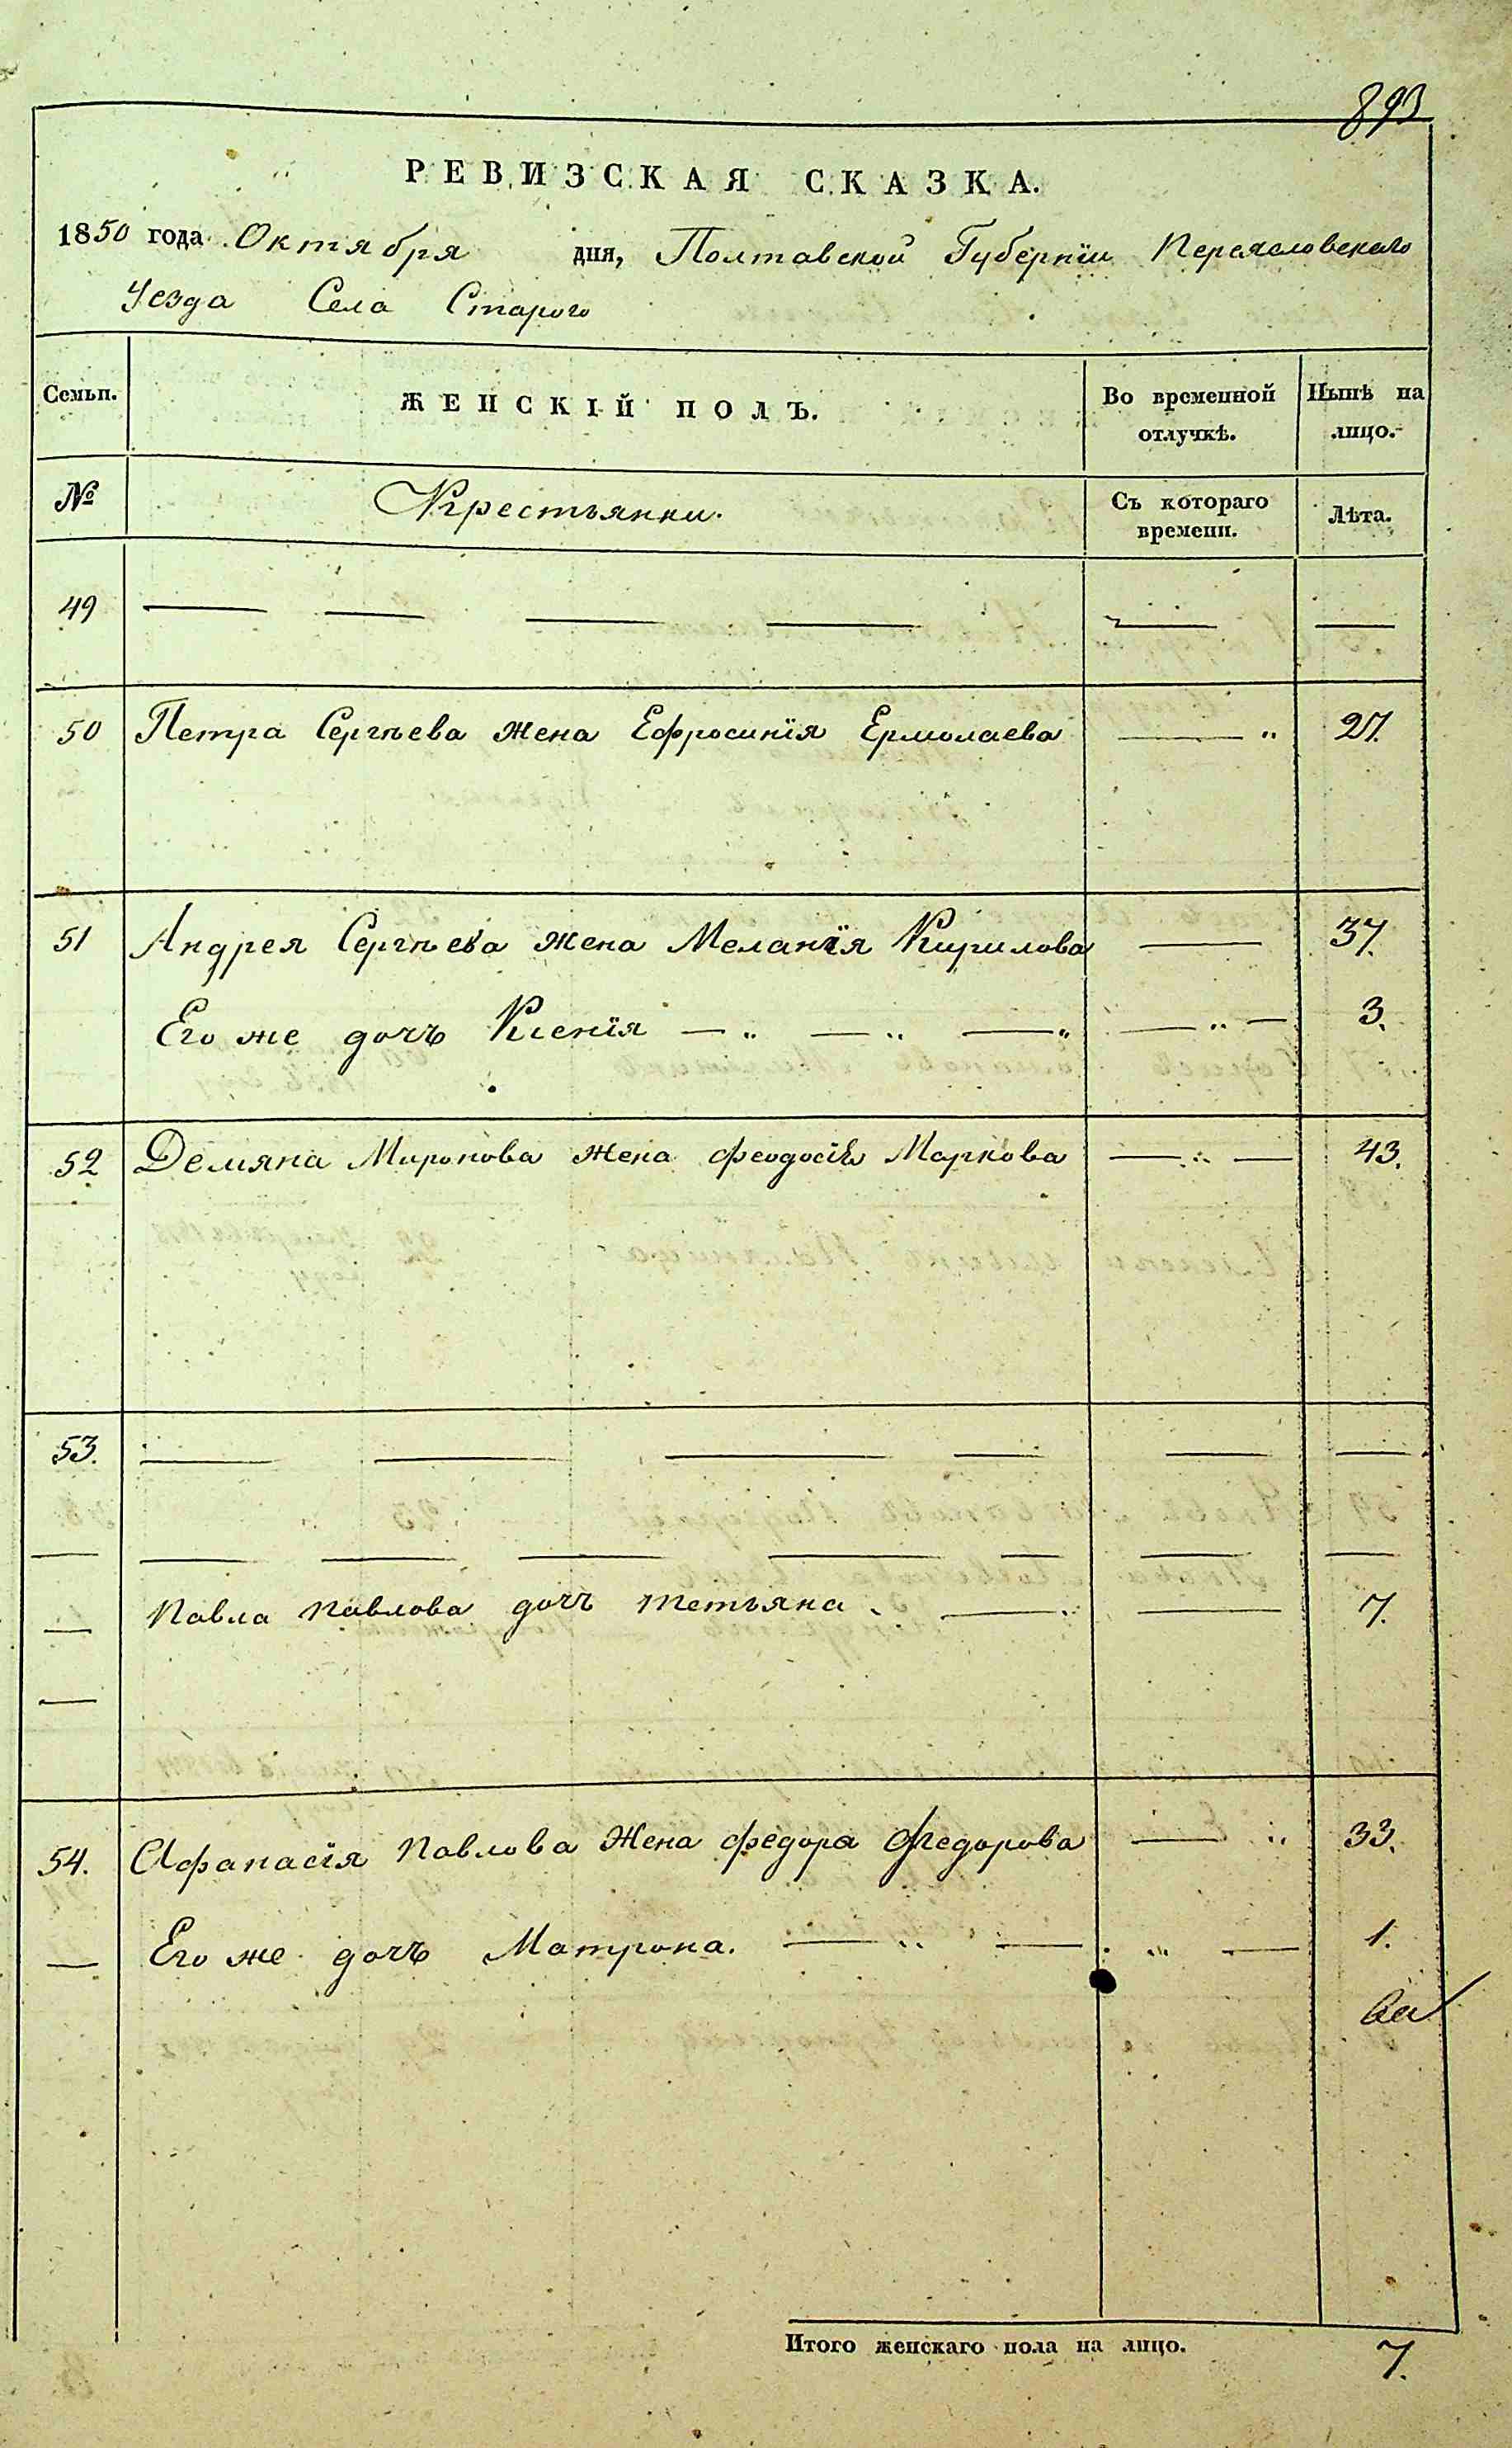 893
РЕВИЗСКАЯ СКАЗКА.
1850 года Октября дня, Полтавской Губернїи Переясловскаго
Уезда Села Старого
Семьи. ЖЕНСКІЙ ПОЛЪ. Во временной отлучкѣ. Нынѣ на лицо.
№ Крестьянки. Съ котораго времени. Лѣта.
49 — — — — — —
50 Петра Сергѣева жена Ефросинїя Ермолаева — " 27.
51 Андрея Сергѣева жена Меланїя Кирилова — 37.
Его же дочъ Ксенїя — " — " — " — " — 3.
52 Демяна Миронова жена феодосїя Маркова — " — 43.
53. — — — — — —
— — — — — — — —
— Павла Павлова дочъ тетьяна — " — 7.
—
54. Афанасїя Павлова жена федора Федорова — " 33.
— Его же дочъ Матрона. — " — " — 1.
Итого женскаго пола на лицо. 7.